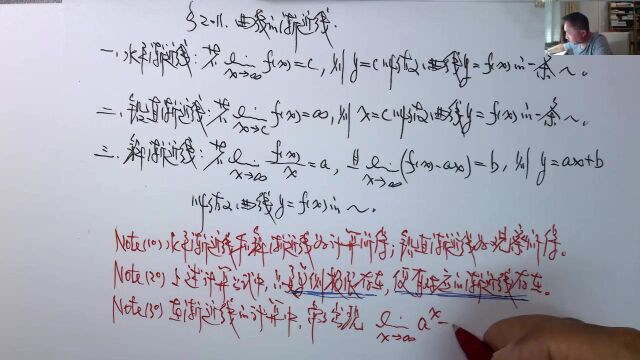 §2.11. 曲线的渐近线.
一. 水平渐近线: 若 lim_{x→∞} f(x)=c, 则 y=c 叫做 曲线 y=f(x) 的一条~。
二. 铅直渐近线: 若 lim_{x→c} f(x)=∞, 则 x=c 叫做 曲线 y=f(x) 的一条~。
三. 斜渐近线: 若 lim_{x→∞} f(x)/x=a, 且 lim_{x→∞} (f(x)-ax)=b, 则 y=ax+b
叫做 曲线 y=f(x) 的~。
Note(1°) 水平渐近线和斜渐近线 计算 得, 铅直渐近线 观察 得。
Note(2°) 上述计算公式中, 单侧极限存在, 便有 的渐近线存在。
Note(3°) 在渐近线的计算中, 常出现 lim_{x→∞} a^x -